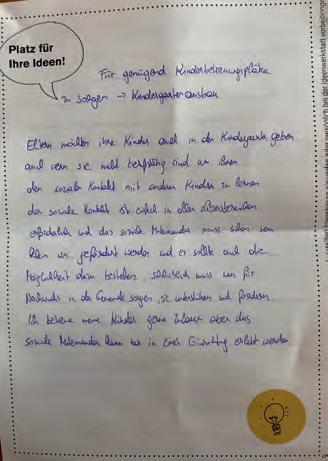 Platz für
Ihre Ideen!
Für genügend Kinderbetreuungsplätze
zu sorgen → Kindergartenausbau
Eltern möchten ihre Kinder auch in den Kindergarten geben
auch wenn sie nicht berufstätig sind um ihnen
den sozialen Kontakt mit anderen Kindern zu lernen
der soziale Kontakt ist einfach in allen
erforderlich und das soziale Miteinander muss schon von
klein an gefördert werden und es sollte auch die
Möglichkeit dazu bestehen, schließlich muss man für
Nachwuchs in der Gemeinde sorgen, sie unterstützen und fördern.
Ich betreue meine Kinder gerne Zuhause aber das
soziale Miteinander kann nur in einer Einrichtung erlebt werden